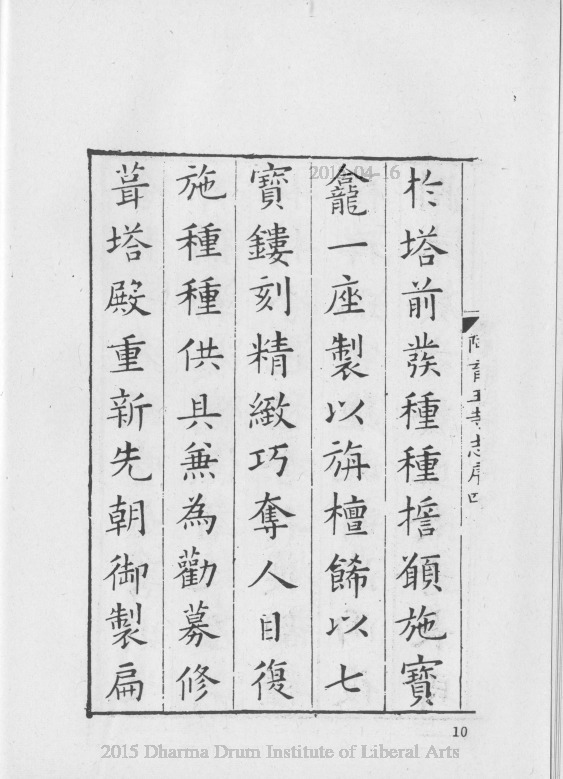 於塔前發種種擔願施寶
龕一座製以旃檀餙以七
寶鏤刻精緻巧奪人目復
施種種供具兼為勸募修
葺塔殿重新先朝御製扁
阿育王寺志序四
10
2015-04-16
2015 Dharma Drum Institute of Liberal Arts